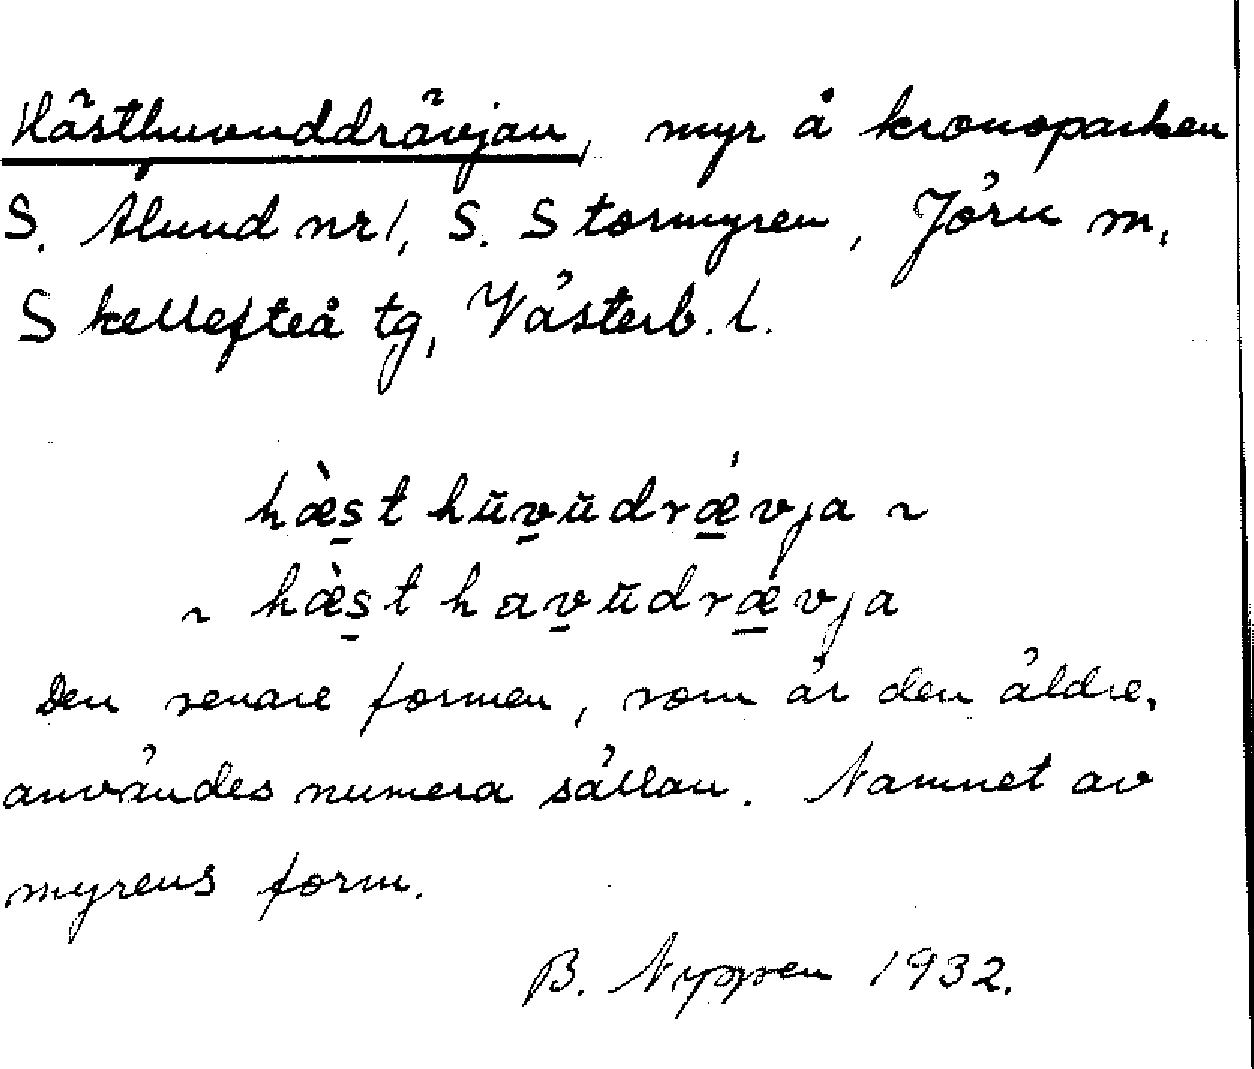 Hästhuvuddrävjan, myr å kronoparken
S. Ålund nr 1, S. Stormyren, Jörn m,
Skellefteå tg, Västerb. l.
hæ̀s̠t hŭv̠ŭdrǽ̠vja ~
~ hæ̀s̠t hav̠ŭdrǽ̠vja
Den senare formen, som är den äldre,
användes numera sällan. Namnet av
myrens form.
B. Nyppen 1932.